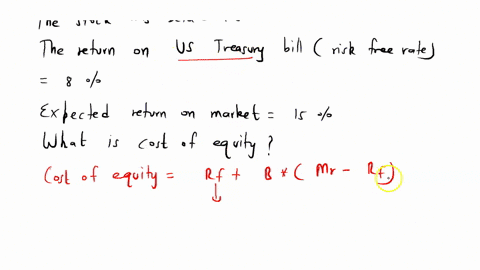 The return on US Treasury bill ( risk free rate)
= 8 %
Expected return on market = 15 %
What is cost of equity ?
Cost of equity = Rf + B * ( Mr - Rf)